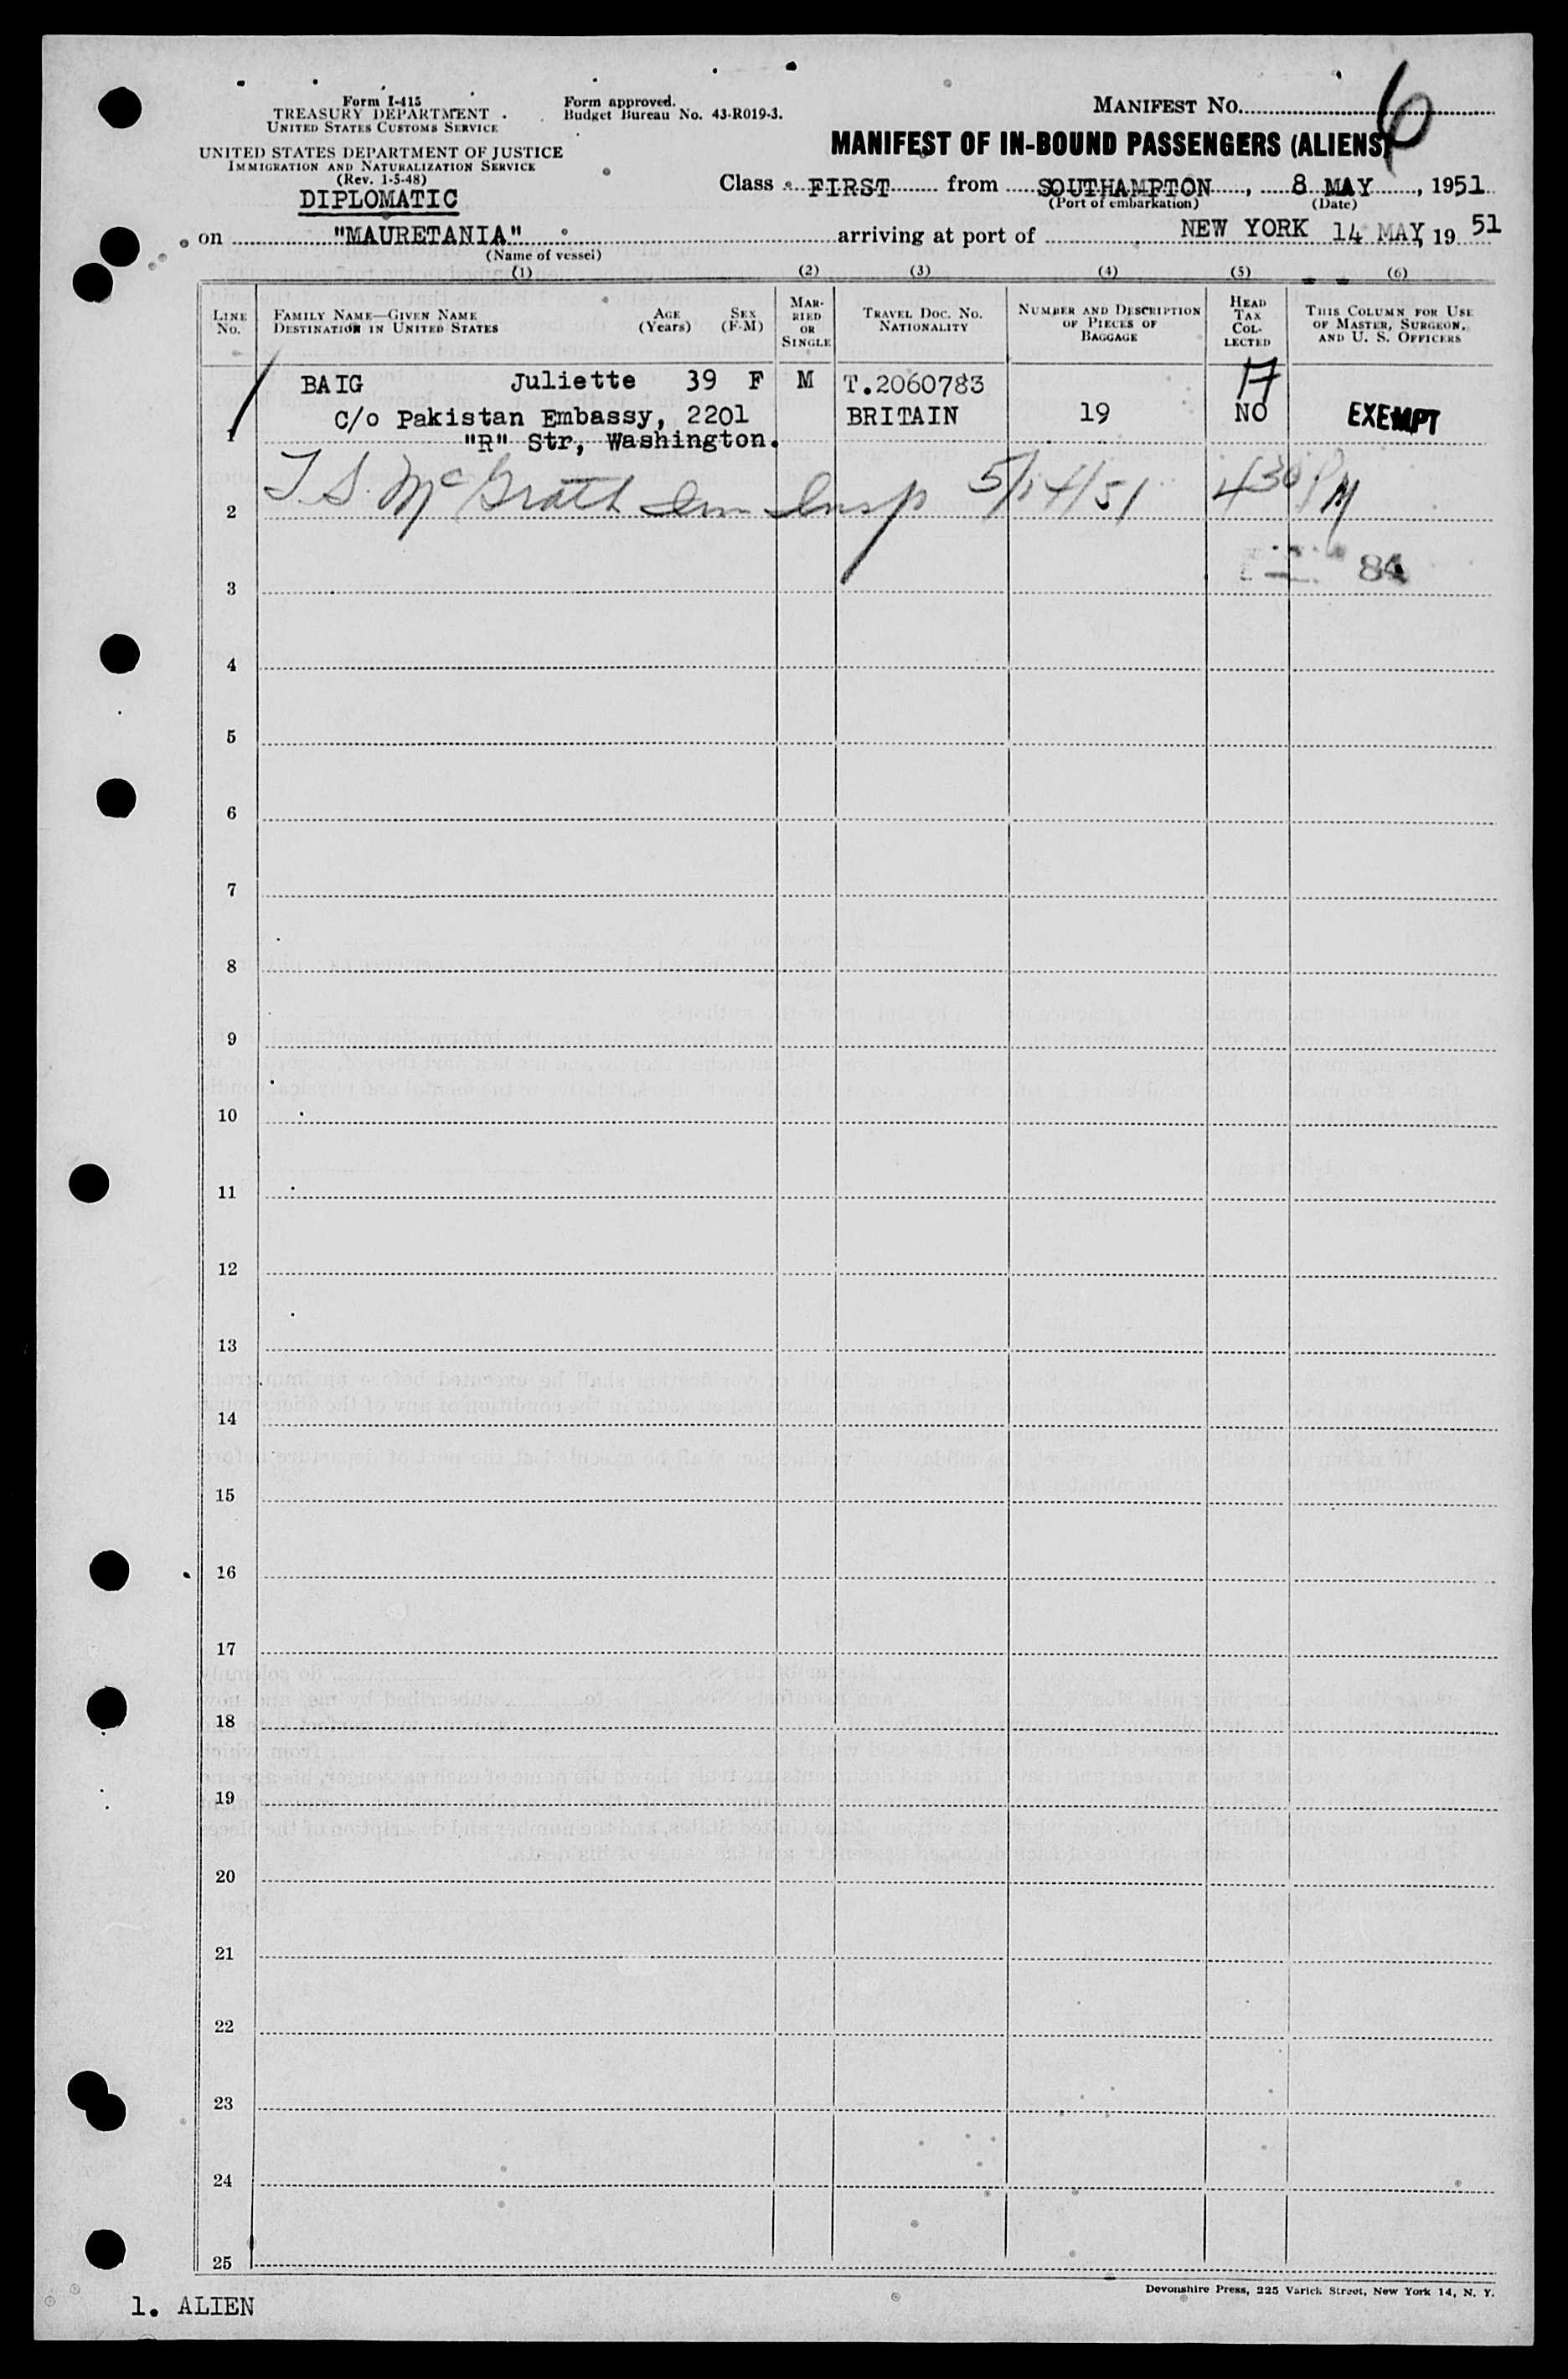 Form I-415
TREASURY DEPARTMENT
UNITED STATES CUSTOMS SERVICE
Form approved.
Budget Bureau No. 43-R019-3.
MANIFEST NO. 6
UNITED STATES DEPARTMENT OF JUSTICE
IMMIGRATION AND NATURALIZATION SERVICE
(Rev. 1-5-48)
DIPLOMATIC
MANIFEST OF IN-BOUND PASSENGERS (ALIENS)
Class FIRST from SOUTHAMPTON, 8 MAY, 1951
(Port of embarkation) (Date)
on "MAURETANIA" arriving at port of NEW YORK 14 MAY, 19 51
(Name of vessel)
(1) (2) (3) (4) (5) (6)
LINE NO.
FAMILY NAME—GIVEN NAME AGE SEX
DESTINATION IN UNITED STATES (Years) (F-M)
MAR-
RIED
OR
SINGLE
TRAVEL DOC. NO.
NATIONALITY
NUMBER AND DESCRIPTION
OF PIECES OF
BAGGAGE
HEAD
TAX
COL-
LECTED
THIS COLUMN FOR USE
OF MASTER, SURGEON,
AND U. S. OFFICERS
BAIG Juliette 39 F M T.2060783
C/o Pakistan Embassy, 2201 BRITAIN 19 NO EXEMPT
1 "R" Str, Washington.
2 T. S. McGrath Imm Insp 5/14/51 4 30 PM
3
4
5
6
7
8
9
10
11
12
13
14
15
16
17
18
19
20
21
22
23
24
25
Devonshire Press, 225 Varick Street, New York 14, N. Y.
1. ALIEN